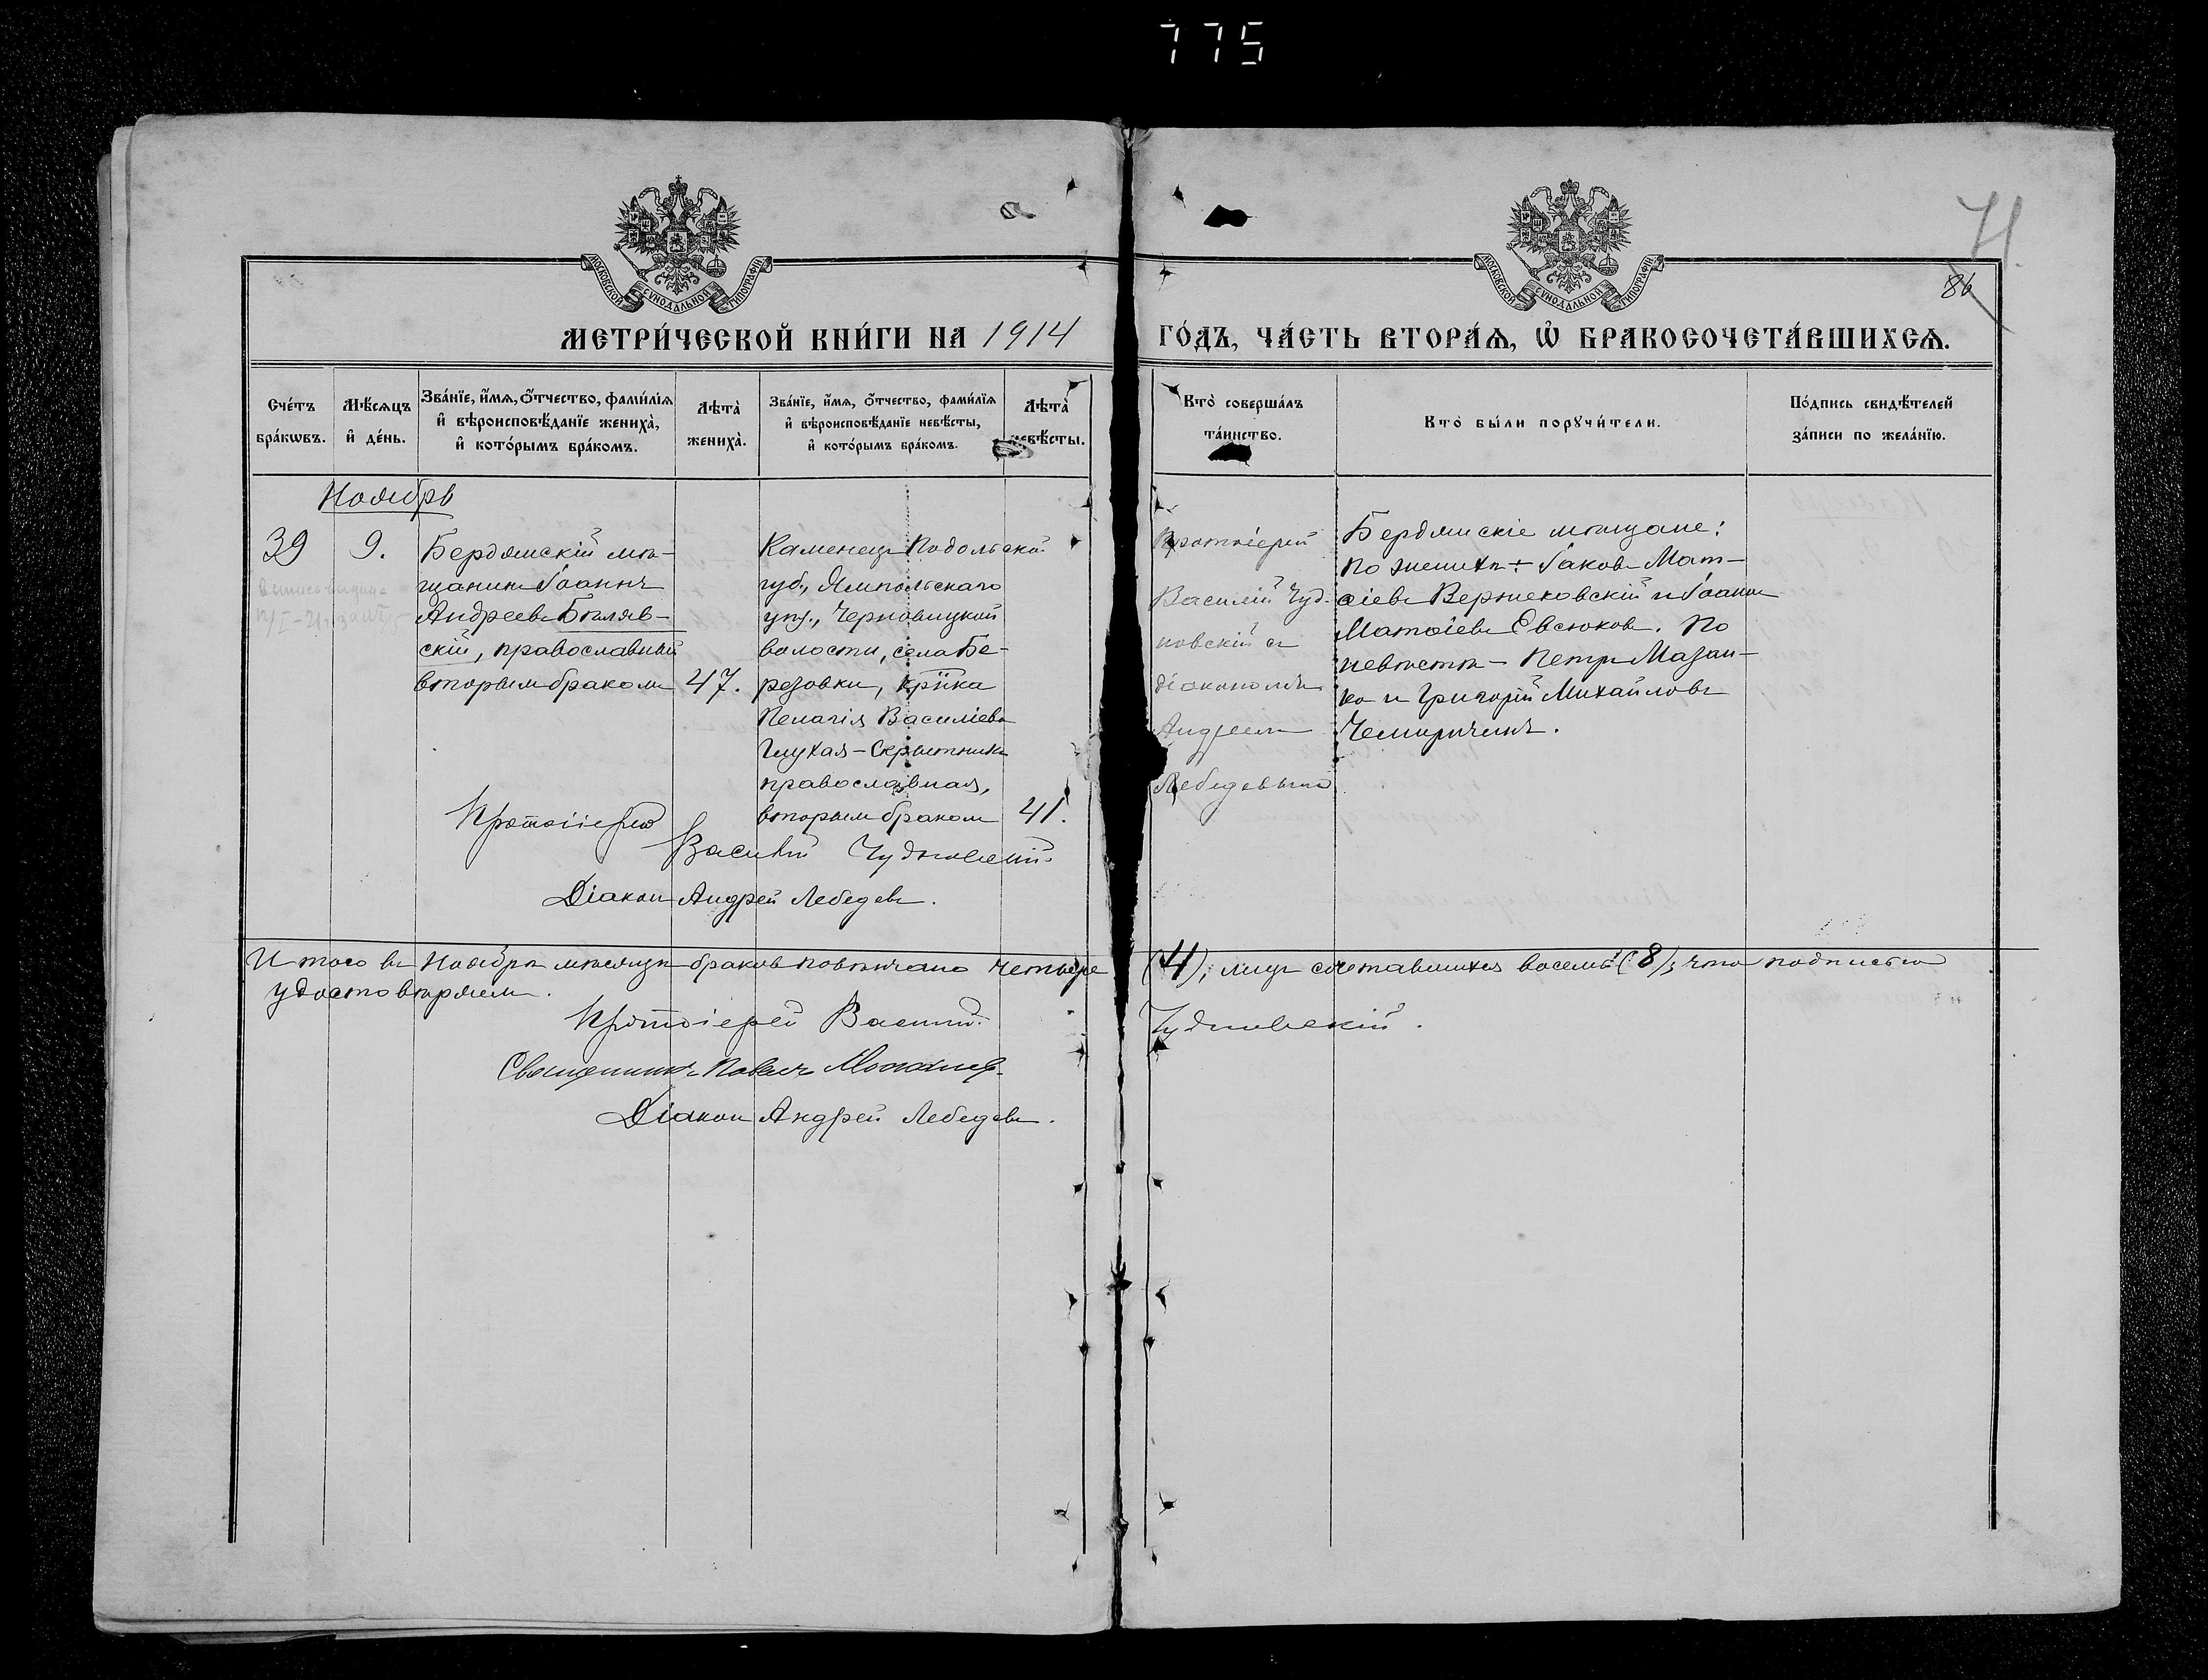 775
71.
86
МОСКОВСКОЙ СѴНОДАЛЬНОЙ ТИПОГРАФІИ
МОСКОВСКОЙ СѴНОДАЛЬНОЙ ТИПОГРАФІИ
МЕТРИ́ЧЕСКОЙ КНИ́ГИ НА 1914
ГО́ДЪ, ЧА́СТЬ ВТОРА́Ѧ, Ѡ҆ БРАКОСОЧЕТА́ВШИХСѦ.
Сче́тъ
бра́кѡвъ.
Мѣ́сѧцъ
и҆ де́нь.
Зва́нїе, и҆́мѧ, ѻ҆́тчество, фами́лїѧ
и҆ вѣроисповѣ́данїе жениха̀,
и҆ кото́рымъ бра́комъ.
Лѣта̀
жениха̀.
Зва́нїе, и҆́мѧ, ѻ҆́тчество, фами́лїѧ
и҆ вѣроисповѣ́данїе невѣ́сты,
и҆ кото́рымъ бра́комъ.
Лѣта̀
невѣ́сты.
Кто̀ соверша́лъ
та́инство.
Кто̀ бы́ли порꙋчи́тели.
По́дпись свидѣ́телей
за́писи по жела́нїю.
Ноябрь
39
9.
Бердянскій мѣ-
щанинъ Іоаннъ
Андреевъ Бѣляв-
скій, православный
вторымъ бракомъ
47.
Каменецъ Подольской
губ., Ямпольскаго
уѣз., Черновицкой
волости, села Бе-
резовки, кр̃ика
Пелагія Василіева
Глухая-Скрытникъ
православная,
вторымъ бракомъ
41.
Протоіерей
Василій Чуд-
новскій съ
діакономъ
Андреемъ
Лебедевымъ
Бердянскіе мѣщане:
по женихѣ: Іаковъ Мат-
ѳіевъ Вержековскій и Іоаннъ
Матѳіевъ Евсюковъ. По
невѣстѣ - Петръ Мазан-
ко и Григорій Михайловъ
Протоіерей
Василій Чудновскій
Діаконъ Андрей Лебедевъ.
Итого въ Ноябрѣ мѣсяцѣ браковъ повѣнчано четыре (4), лицъ сочетавшихся восемь (8), что подписью
удостовѣряемъ.
Протоіерей Василій Чудновскій.
Священникъ Павелъ
Діаконъ Андрей Лебедевъ.